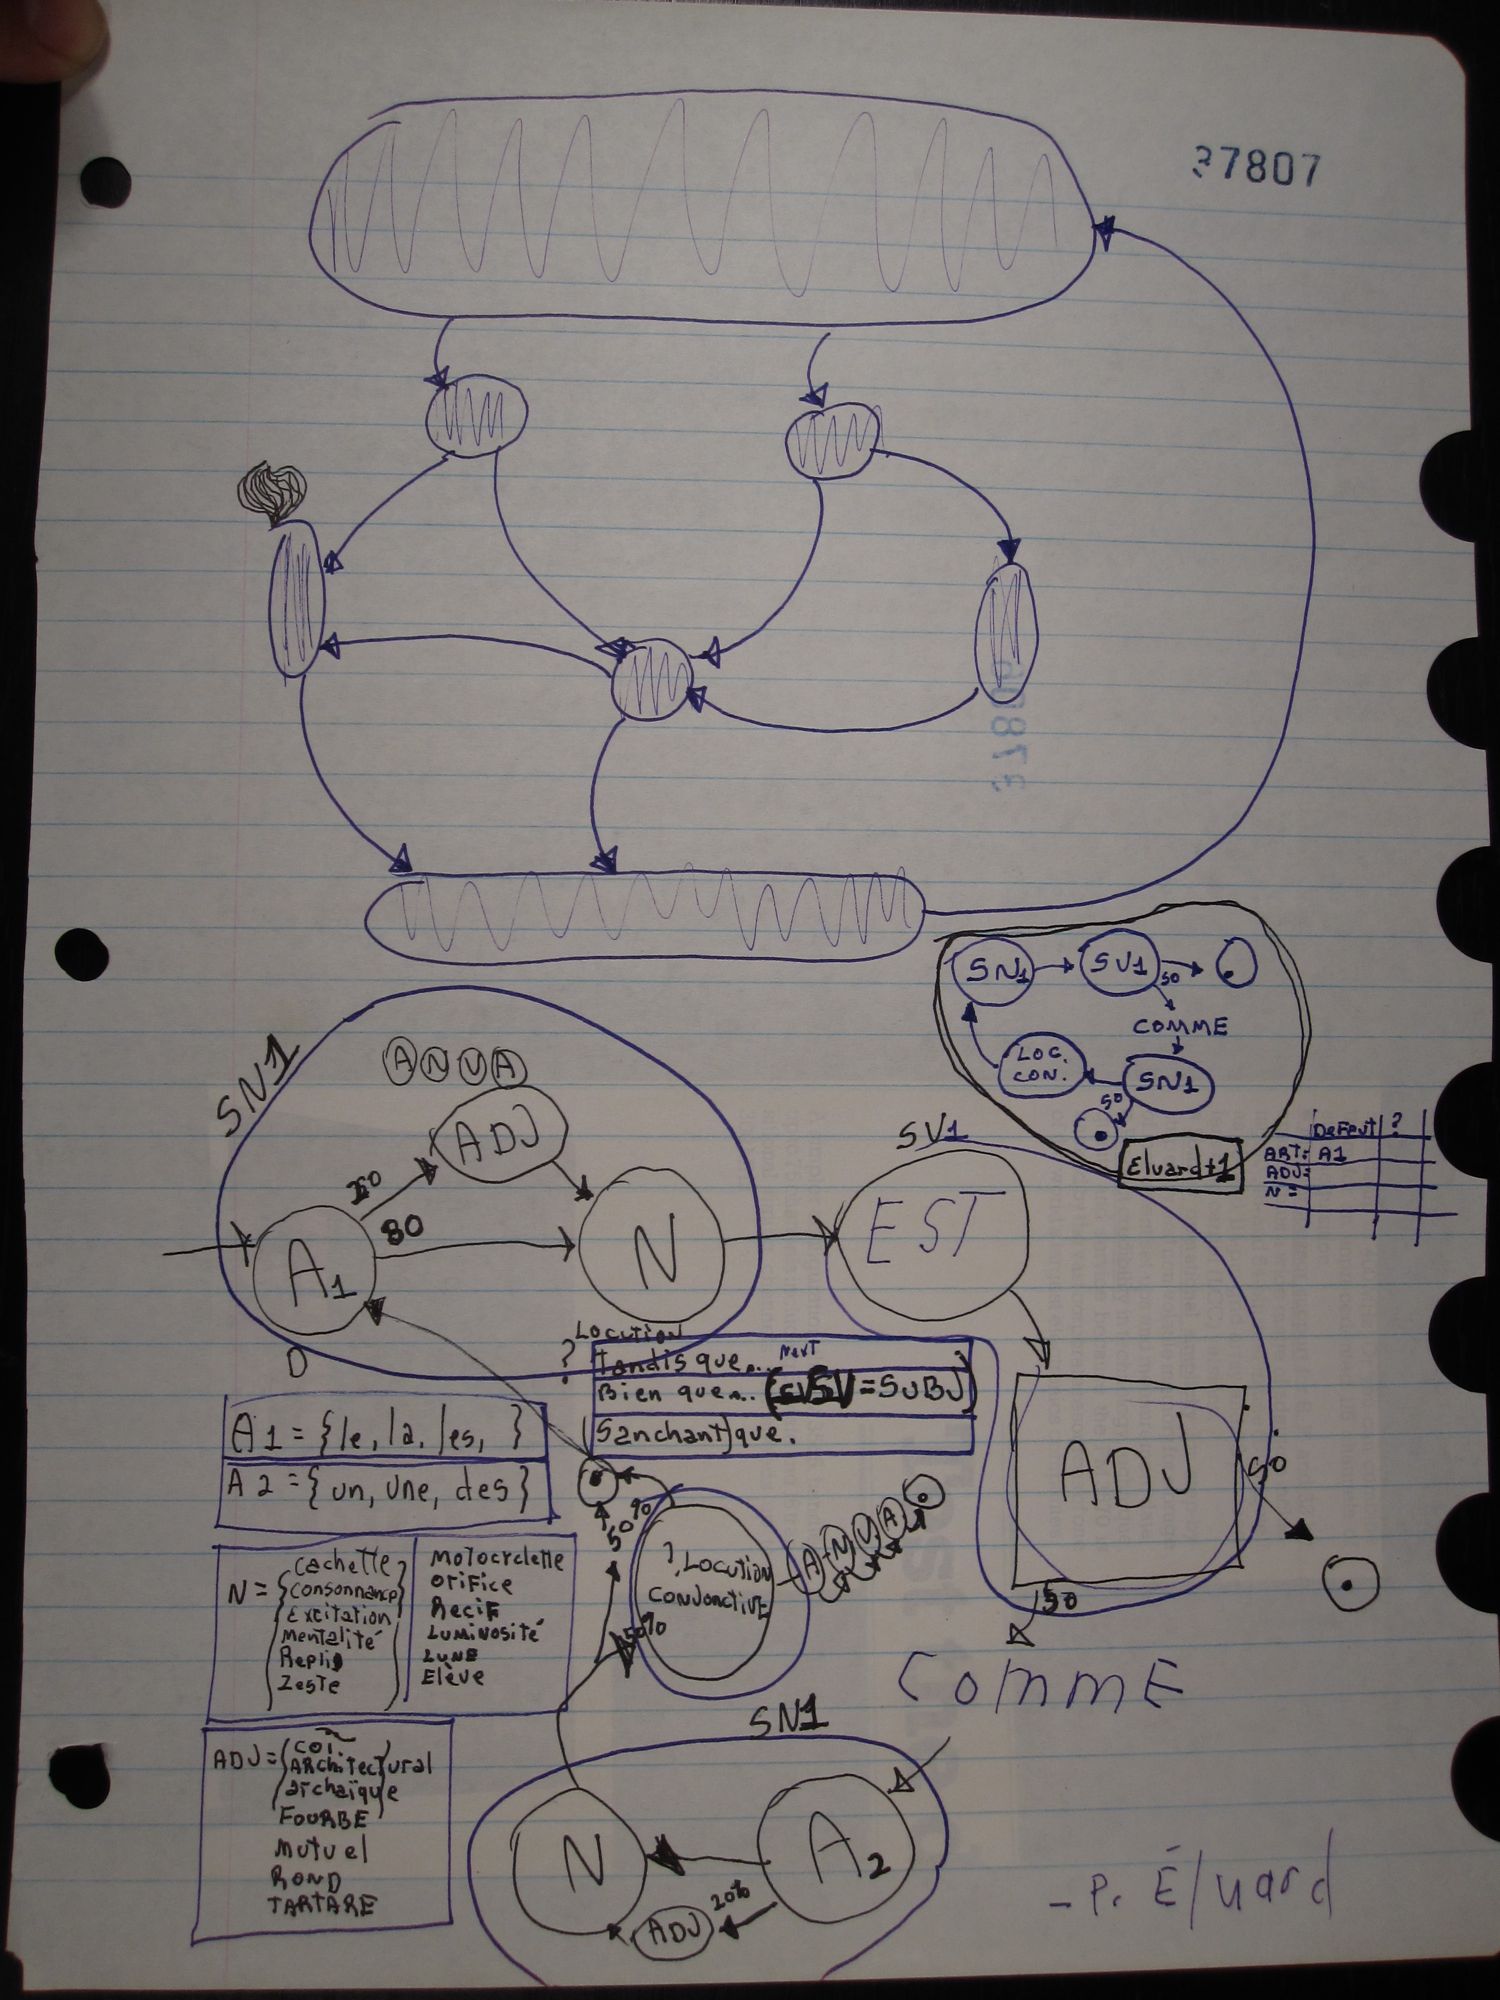 37807
37806
SN1
SV1
50
COMME
LOC.
CON.
SN1
50
Eluard+1
DeFeut ?
ART= A1
ADJ=
N =
SN1
A N V A
ADJ
20
80
A1
N
D
SV1
EST
ADJ
50
50
COMME
? Locution
Tandis que... Next
Bien que... (SV = SUBJ)
(Sanchant) que.
A1 = {le, la, les, }
A2 = {un, une, des}
N = {cachette
consonnance
Excitation
Mentalité
Replis
Zeste}
Motocyclette
Orifice
Recif
Luminosité
Lune
Elève
50%
?, Locution
Conjonctive
50%
A N V A
ADJ = {coi
Architectural
archaïque
FOURBE
Mutuel
ROND
TARTARE
SN1
N
A2
20%
ADJ
- P. Éluard